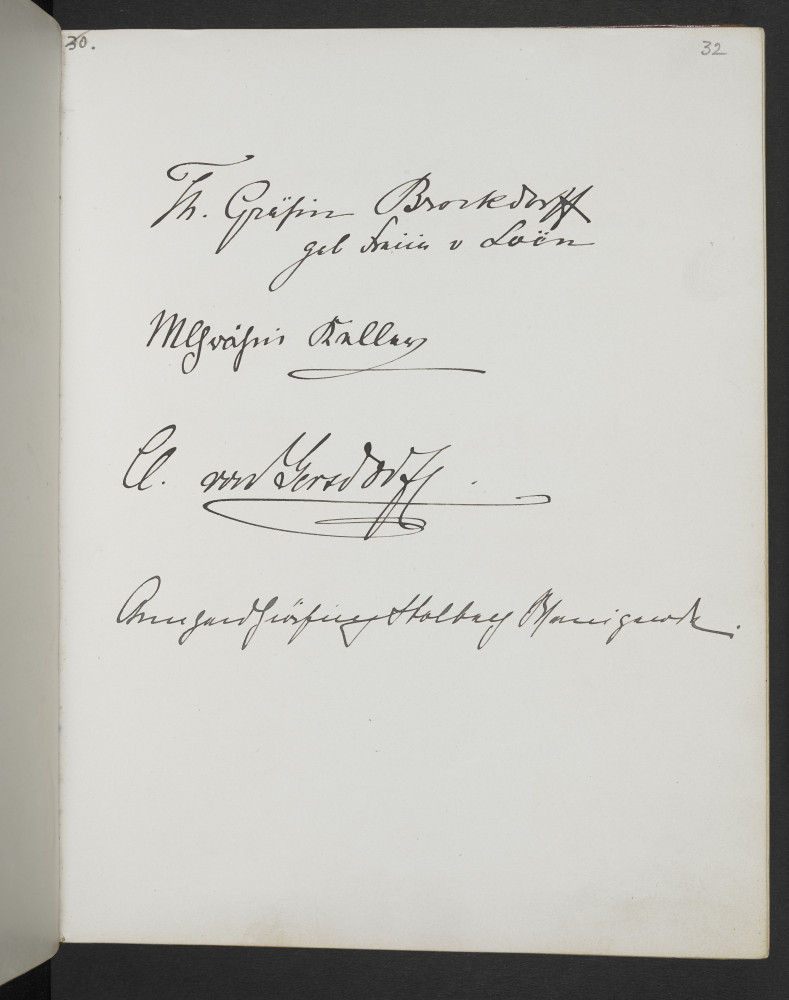 30.
32
Th. Gräfin Brockdorff
geb Freiin v Loën
M Gräfin Keller
Cl. von Gersdorff.
Armgard Gräfin Stolberg Wernigerode.